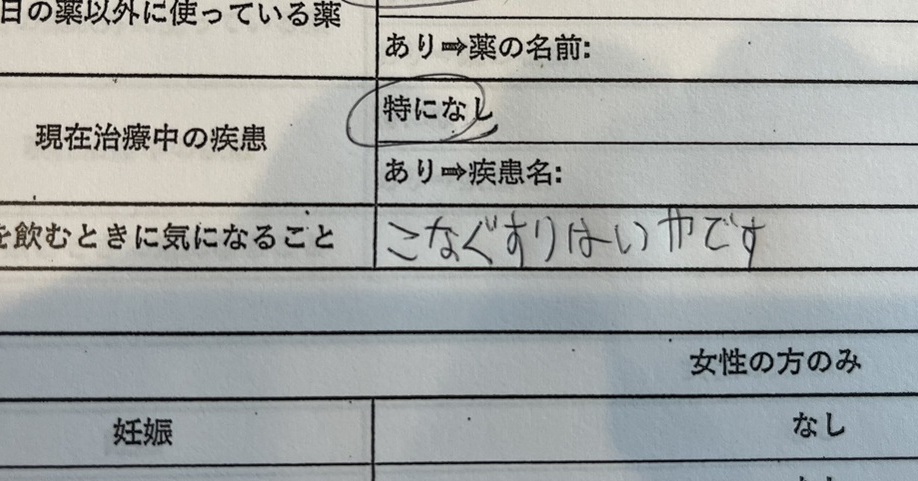 日の薬以外に使っている薬
あり⇒薬の名前:
現在治療中の疾患
特になし
あり⇒疾患名:
を飲むときに気になるこど
こなぐすりはいやです
女性の方のみ
妊娠
なし